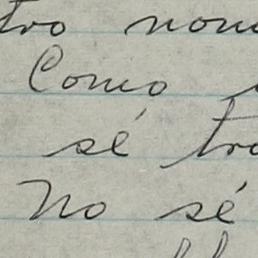 tro nom
Como
sé tra
No sé